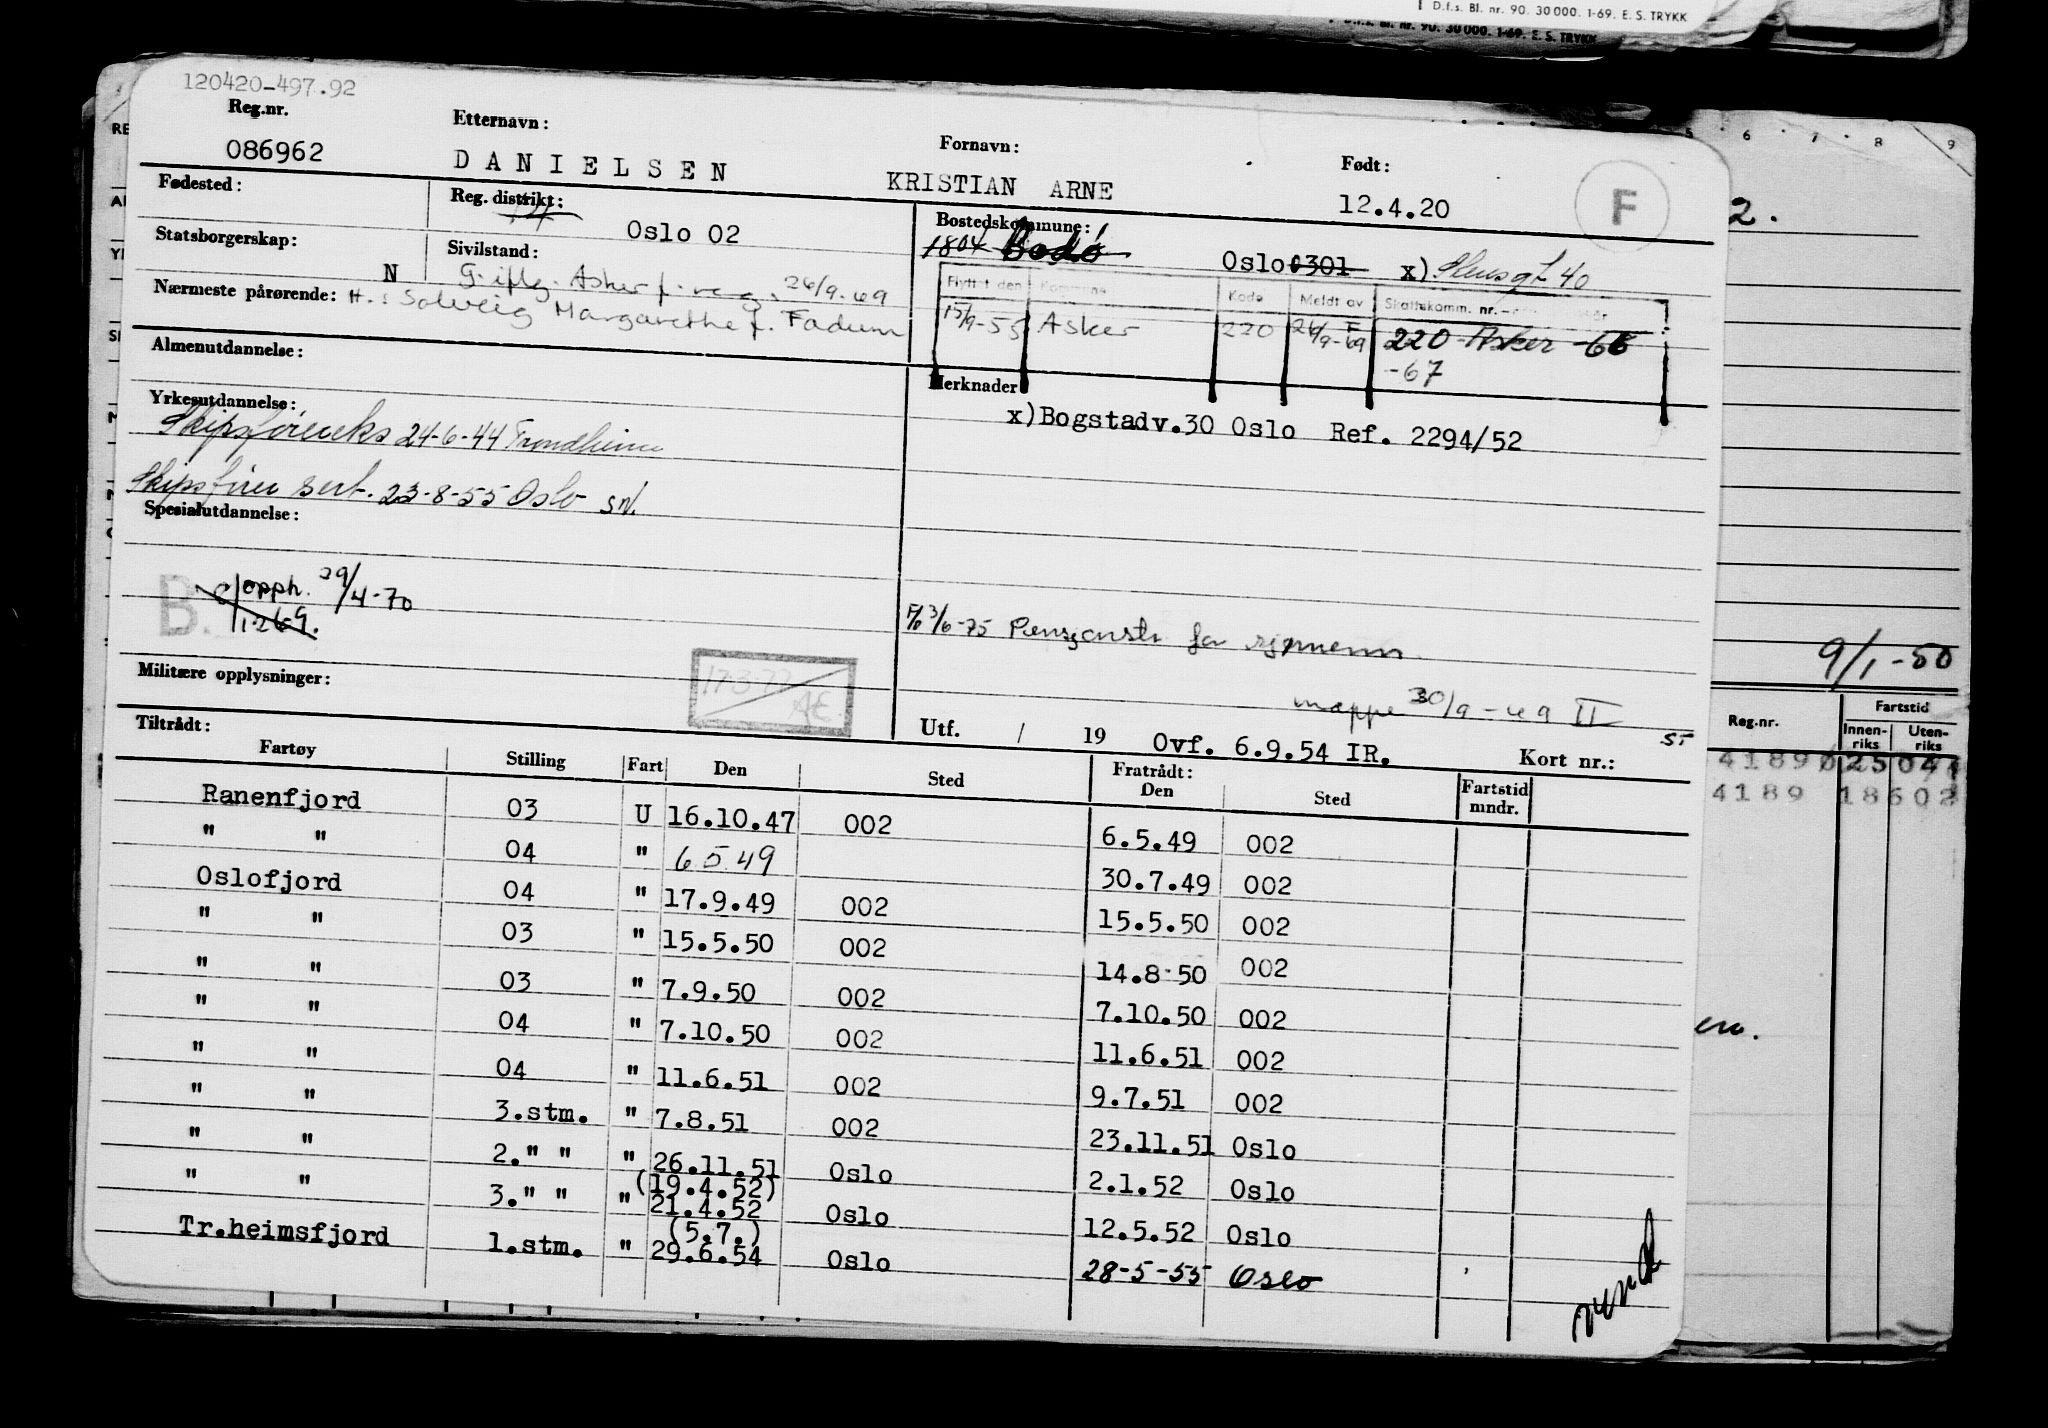 D.f.s. Bl. nr. 90. 30 000. 1-69. E. S. TRYKK
D.f.s. Bl. nr. 90. 30 000. 1-69. E. S. TRYKK
120420-497.92
Reg.nr. Etternavn: Fornavn: Født:
086962 DANIELSEN KRISTIAN ARNE 12.4.20 F
Fødested: Reg. distrikt: Oslo 02
Bostedskommune: 1804 Bodø Oslo 0301 x)
Statsborgerskap: N Sivilstand: G. iflg. Asker f. reg. 26/9-69
Nærmeste pårørende: H.: Solveig Margarethe f. Fadum
Flyttet den Kommune Kode Meldt av Skattekomm. nr.
15/9-55 Asker 220 26/9-69 F 220 Asker -66
-67
Almenutdannelse:
Merknader
x) Bogstadv.30 Oslo Ref. 2294/52
Yrkesutdannelse:
Skipsførereks 24-6-44 Trondheim
Skipsfører sert. 23-8-55 Oslo
Spesialutdannelse:
B. opph. 29/4-70
3/6-75 Pensjonstr for sjømenn
Militære opplysninger:
17.3.77
AE
mappe 30/9-69 II
Tiltrådt:
Utf. / 19 Ovf. 6.9.54 IR. Kort nr.:
Fartøy Stilling Fart Den Sted Fratrådt: Den Sted Fartstid mndr.
Ranenfjord 03 U 16.10.47 002 6.5.49 002
" " 04 " 6.5.49 30.7.49 002
Oslofjord 04 " 17.9.49 002 15.5.50 002
" " 03 " 15.5.50 002 14.8.50 002
" " 03 " 7.9.50 002 7.10.50 002
" " 04 " 7.10.50 002 11.6.51 002
" " 04 " 11.6.51 002 9.7.51 002
" " 3.stm. " 7.8.51 002 23.11.51 Oslo
" " 2." " " 26.11.51 Oslo 2.1.52 Oslo
(19.4.52)
" " 3." " " 21.4.52 Oslo 12.5.52 Oslo
(5.7.)
Tr.heimsfjord 1.stm. " 29.6.54 Oslo 28-5-55 Oslo
vend
5 6 7 8 9
2.
9/1-50
Reg.nr. Fartstid
Innenriks Utenriks
4189 02504
4189 18602